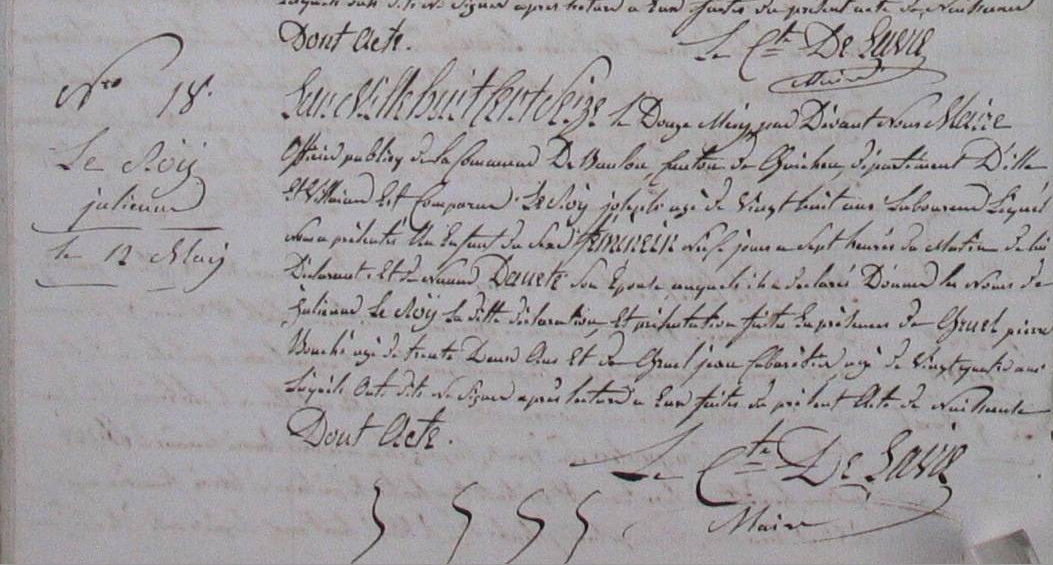 Dont Acte.
Le Cte De Lavie
Maire
Nro 18.
Le Roy
julienne
le 12 May
L'an Mille huit cent Seize le Douze May, par Devant Nous Maire
Officier public de la Commune De Baulon, Canton de Guichen, département D'ille
Et Villaine Est Comparu Le Roy joseph agé de Vingt huit ans Laboureur Lequel
Nous a présenté Un Enfant du Sexe féminin jour a Sept heures du Matin de lui
Déclarant, Et de Son Epouse auquel il a declaré Donner les Noms de
julienne Le Roy La ditte déclaration Et présentation faites En présence de Gruel pierre
agé de trente Deux Ans Et de Gruel jean Cabaretier agé de Vingt ans
Lesquels Ont dit Ne Signer après lecture a Eux faites du présent Acte de Naissance
Dont Acte.
Le Cte De Lavie
Maire